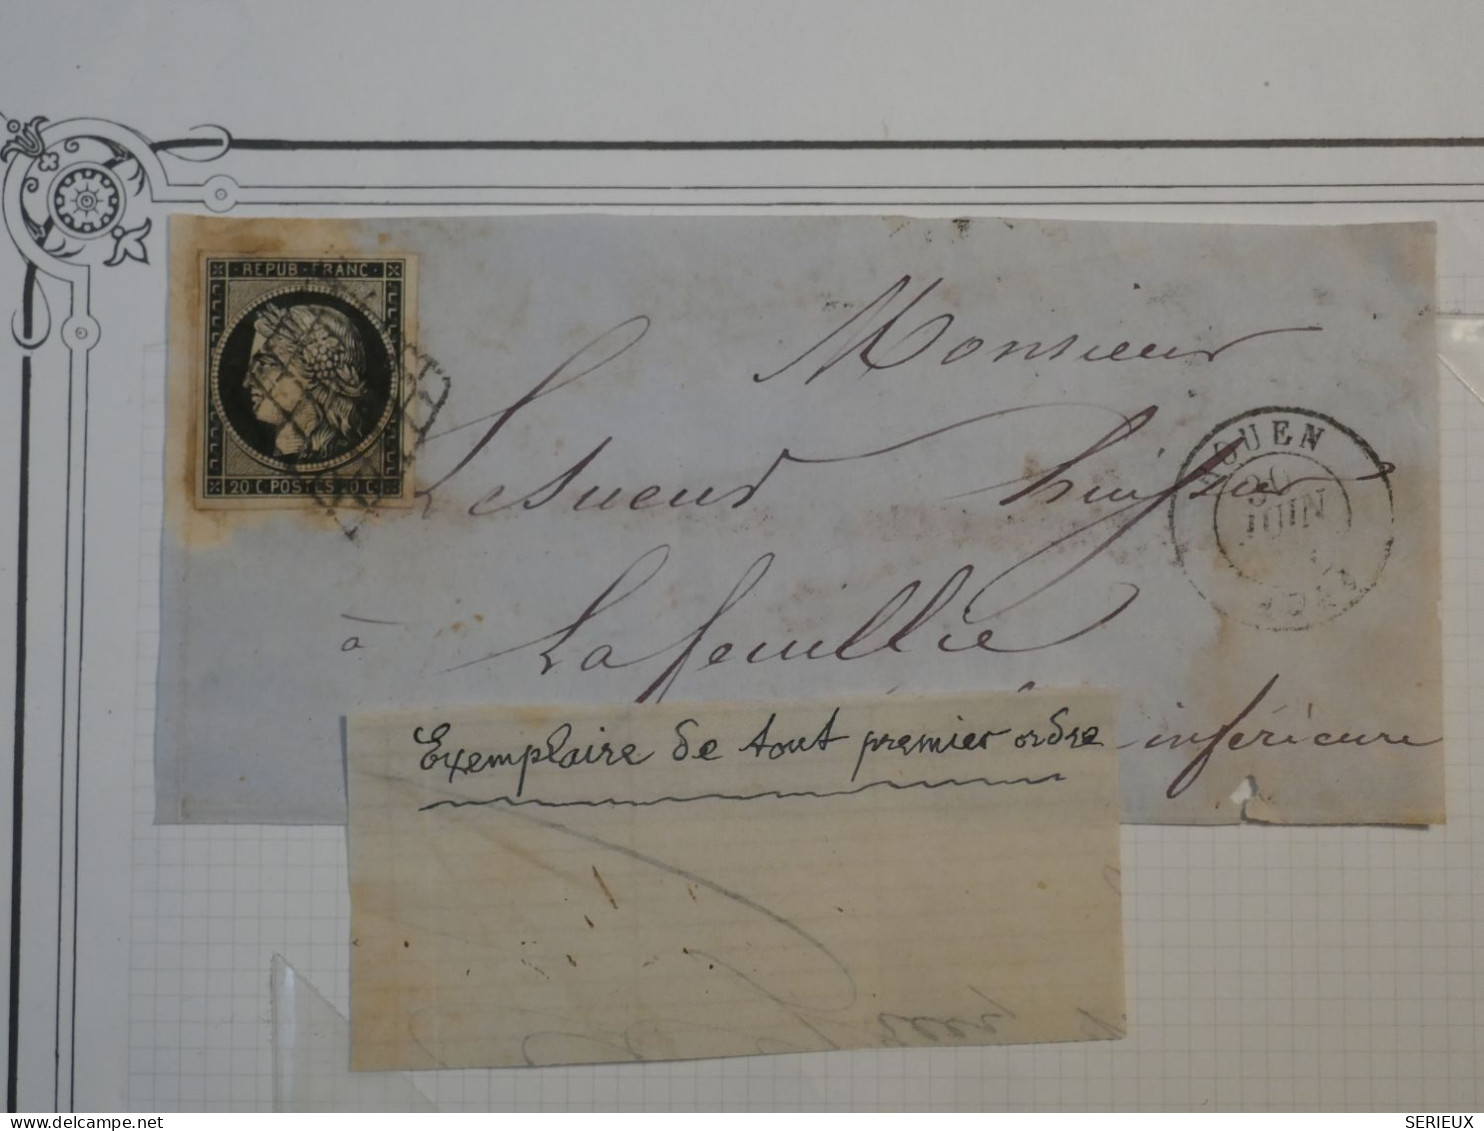 REPUB FRANC
20 C POSTES 20 C
Monsieur
Lesueur huissier
à Lafeuillie
inférieure
ROUEN
JUIN
Exemplaire de tout premier ordre
SERIEUX